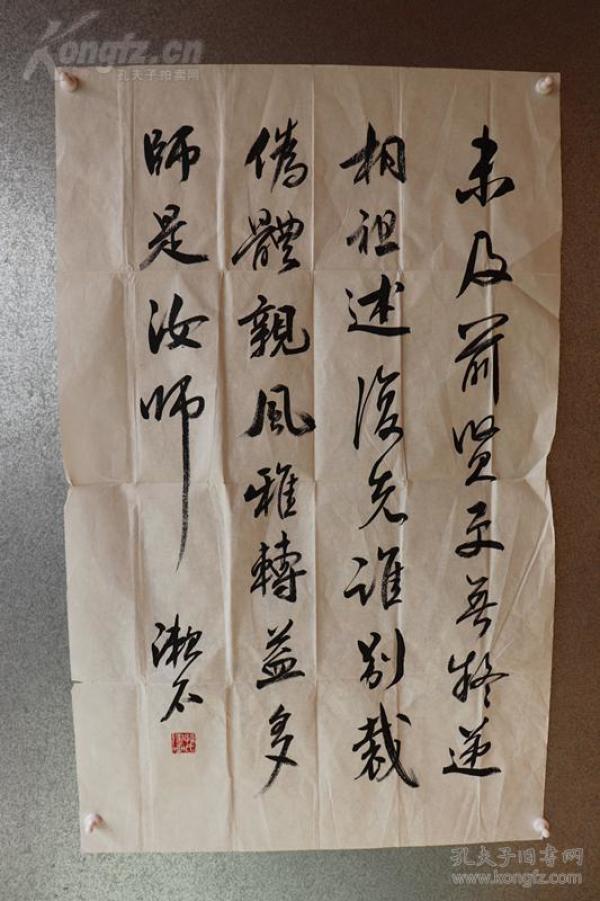 Kongfz.cn
孔夫子拍卖网
未及前贤更無疑递
相祖述復先誰別裁
僞體親風雅轉益多
師是汝師
漱石
孔夫子旧书网
www.kongfz.com